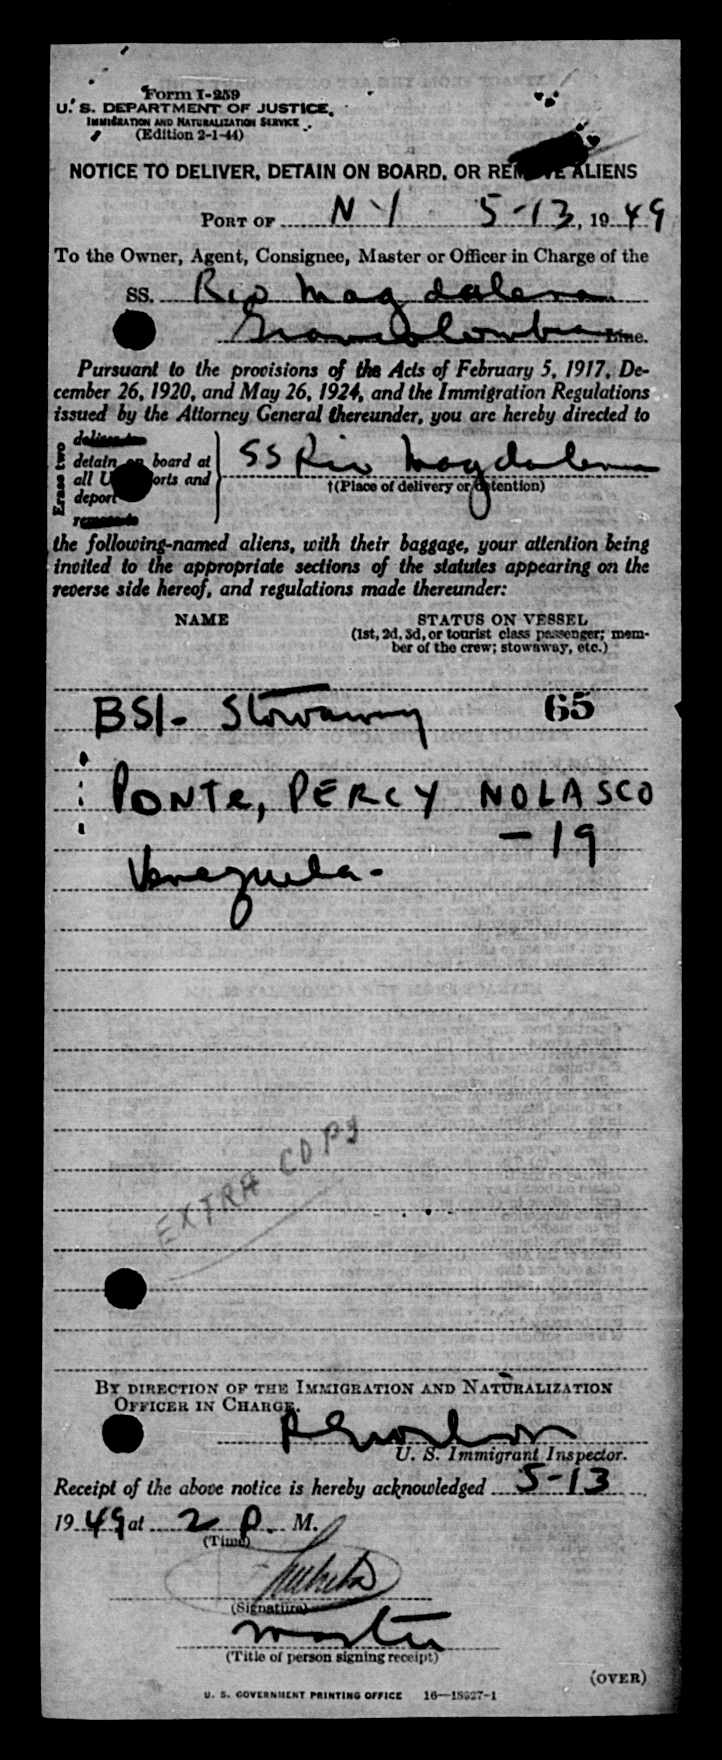 Form I-259
U. S. DEPARTMENT OF JUSTICE,
IMMIGRATION AND NATURALIZATION SERVICE
(Edition 2-1-44)
NOTICE TO DELIVER, DETAIN ON BOARD, OR REMOVE ALIENS
PORT OF NY 5-13, 1949
To the Owner, Agent, Consignee, Master or Officer in Charge of the
SS. Rio Magdalena
Grancolombia Line.
Pursuant to the provisions of the Acts of February 5, 1917, De-
cember 26, 1920, and May 26, 1924, and the Immigration Regulations
issued by the Attorney General thereunder, you are hereby directed to
Erase two
deliver to
detain on board at
all U. ports and
deport
remove to
SS Rio Magdalena
†(Place of delivery or detention)
the following-named aliens, with their baggage, your attention being
invited to the appropriate sections of the statutes appearing on the
reverse side hereof, and regulations made thereunder:
NAME STATUS ON VESSEL
(1st, 2d, 3d, or tourist class passenger; mem-
ber of the crew; stowaway, etc.)
BSI- Stowaway 65
PONTE, PERCY NOLASCO
-19
Venezuela-
EXTRA COPY
BY DIRECTION OF THE IMMIGRATION AND NATURALIZATION
OFFICER IN CHARGE.
U. S. Immigrant Inspector.
Receipt of the above notice is hereby acknowledged 5-13
1949 at 2 P. M.
(Time)
(Signature)
Master
(Title of person signing receipt)
(OVER)
U. S. GOVERNMENT PRINTING OFFICE 16—18327-1